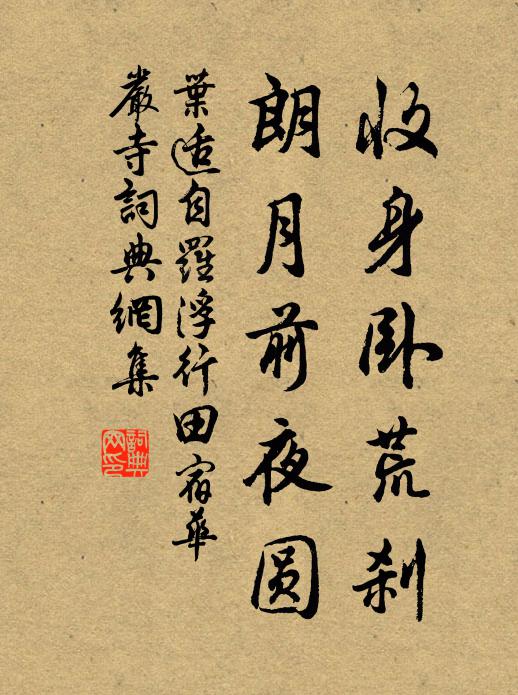 收身卧荒刹
朗月前夜圆
葉适自羅浮行田宿華
嚴寺詞典網集
詞典网印